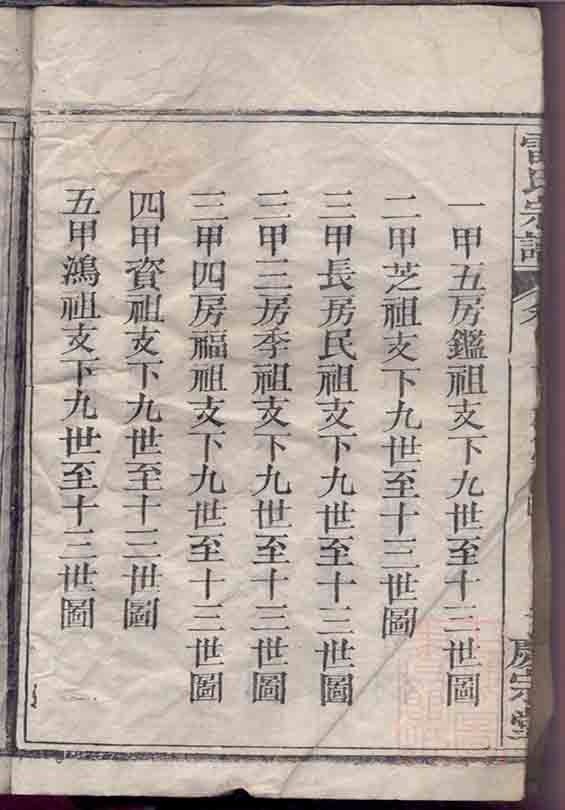 雷氏宗譜
慶宗堂
一甲五房鑑祖支下九世至十三世圖
二甲芝祖支下九世至十三世圖
三甲長房民祖支下九世至十三世圖
三甲三房季祖支下九世至十三世圖
三甲四房福祖支下九世至十三世圖
四甲資祖支下九世至十三世圖
五甲鴻祖支下九世至十三世圖